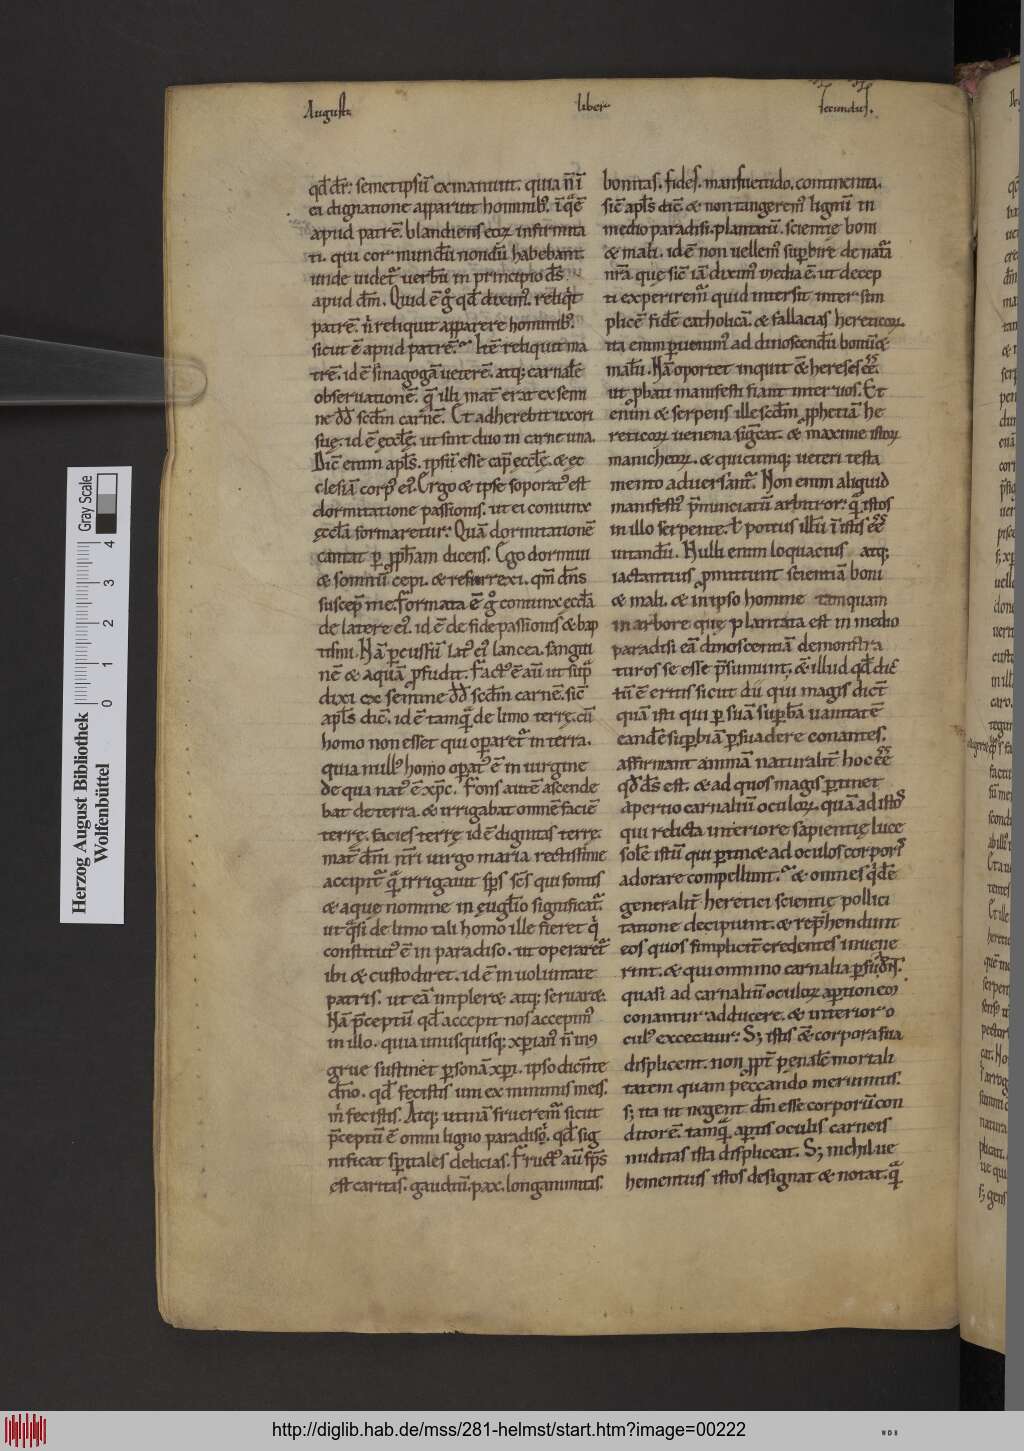 Augusti liber secundus.
qđ dr̄: semetipsū exinaniuit. quia n̄ ī
ei dignatione apparuit hominib;. ī q̄ ē
apud patrē. blandiens eoꝝ infirmita
ti. qui cor mundū nondū habebant.
unde uidet̄ uerbū in principio dꝰ
apud dm̄. Quid ē g̊ qđ diximꝰ. reliq̇t
patrē. n̄ reliquit apparere hominibꝰ.
sicut ē apud patrē. Itē reliquit ma
trē. id ē sinagogā ueterē. atq; carnalē
obseruationē. q̄ illi mat̄ erat ex semi
ne dd̄ scd̄m carnē. Et adherebit uxori
suę. id ē ęccłę. ut sint duo in carne una.
Dic̄ enim aptłs. ipsū esse cap̄ ęccłę. & ęc
clesiā corpꝰ eiꝰ. Ergo & ipse soporatꝰ est
dormitatione passionis. ut ei coniunx
ęccłā formaretur. Quā dormitationē
cantat ꝑ ꝓph̄am dicens. Ego dormiui
& somnū cepi. & resurrexi. qm̄ dn̄s
suscep̄ me. formata ē g̊ coniunx eccłā
de latere eiꝰ. id ē de fide passionis & bap
tismi. Nā ꝑcussū latꝰ eiꝰ lancea. sangui
nē & aquā ꝓfudit. Factꝰ ē aū ut sup̄
dixi ex semine dd̄ scd̄m carnē. sic̄
aptłs dic̄. id ē tamq̄ de limo terrę. cū
homo non esset qui oparet̄ in terra.
quia nullꝰ homo opatꝰ ē in uirgine
de qua natꝰ ē xp̄c. Fons autē ascende
bat de terra. & irrigabat omnē faciē
terrę. facies terrę id ē dignitas terrę.
mat̄ dn̄i nr̄i uirgo maria rectissime
accipit̄ q̄ irrigauit sp̄s sc̄s qui fontis
& aquę nomine in ęugłio significat̄.
ut q̄si de limo tali homo ille fieret q̇
constitutꝰ ē in paradiso. ut operaret̄
ibi & custodiret. id ē in uoluntate
patris. ut eā impler& atq; seruar&.
Nā p̄ceptū qđ accepit nos accepimꝰ
in illo. quia unusquisq; xpianꝰ n̄ in9
grue sustinet ꝑsonā xp̄i. ipso dicn̄te
dn̄o. qđ fecistis uni ex minimis meis.
m̊ fecistis. Atq; utinā frueremur̄ sicut
p̄ceptū ē omni ligno paradisi. qđ sig
nificat sp̄itales delicias. Fructꝰ aū sp̄s
est caritas. gaudiū. pax. longanimitas.
bonitas. fides. mansuetudo. continentia.
sic̄ aptłs dic̄. & non tangeremꝰ lignū in
medio paradisi. plantatū. scientię boni
& mali. id ē non uellemꝰ supbire de natā
nr̄a quę sic̄ iā diximꝰ media ē. ut decep
ti experirem̄ quid intersit inter sim
plicē fidē catholicā. & fallacias hereticoꝝ.
ita enim ꝑuenimꝰ ad dinoscendū bonū &
malū. Nā oportet inquit & hereses ēē.
ut ꝓbati manifesti fiant inter uos. Et
enim & serpens ille scd̄m ꝓphetiā he
reticoꝝ uenena sig̅cat. & maxime istoꝝ
manicheoꝝ. & quicumq; ueteri testa
mento aduersant̄. Non enim aliquid
manifestiꝰ p̄nunciatū arbitror: q̄ istos
in illo serpente. ł potius illū ī istis ēē
uitandū. Nulli enim loquacius atq;
iactantius ꝓmittunt scientiā boni
& mali. & in ipso homine tamquam
in arbore quę plantata est in medio
paradisi eā dinoscentiā demonstra
turos se esse p̄sumunt. & illud qđ dic̄
tū ē eritis sicut dii qui magis dict̄
quā isti qui ꝑ suā supbā uanitatē
eandē supbiā ꝑsuadere conantes.
affirmant animā naturalit̄ hoc ēē
qđ dꝰs est. & ad quos magis ꝑtinet
apertio carnaliū oculoꝝ. quā ad istoꝰ
qui relicta interiore sapientię luce
solē istū qui ꝑtin& ad oculos corporiꝰ
adorare compellunt. & omnes q̇dē
generalit̄ heretici scientię pollici
tatione decipiunt. & rep̄hendunt
eos quos simplicit̄ credentes inuene
rint. & qui omnino carnalia ꝑsuadn̄t.
quasi ad carnaliū oculoꝝ aptionem
conantur adducere. & interior o
culꝰ excecatur. S; istis & corpora sua
displicent. non ꝓpt̄ penalē mortali
tatem quam peccando meruimus.
s; ita ut negent dm̄ esse corporū con
ditorē. tamq̄. aptis oculis carneis
nuditas ista displiceat. S; nichil ue
hementius istos designat & notat. q̄
Herzog August Bibliothek
Wolfenbüttel
Gray Scale
0 1 2 3 4
http://diglib.hab.de/mss/281-helmst/start.htm?image=00222